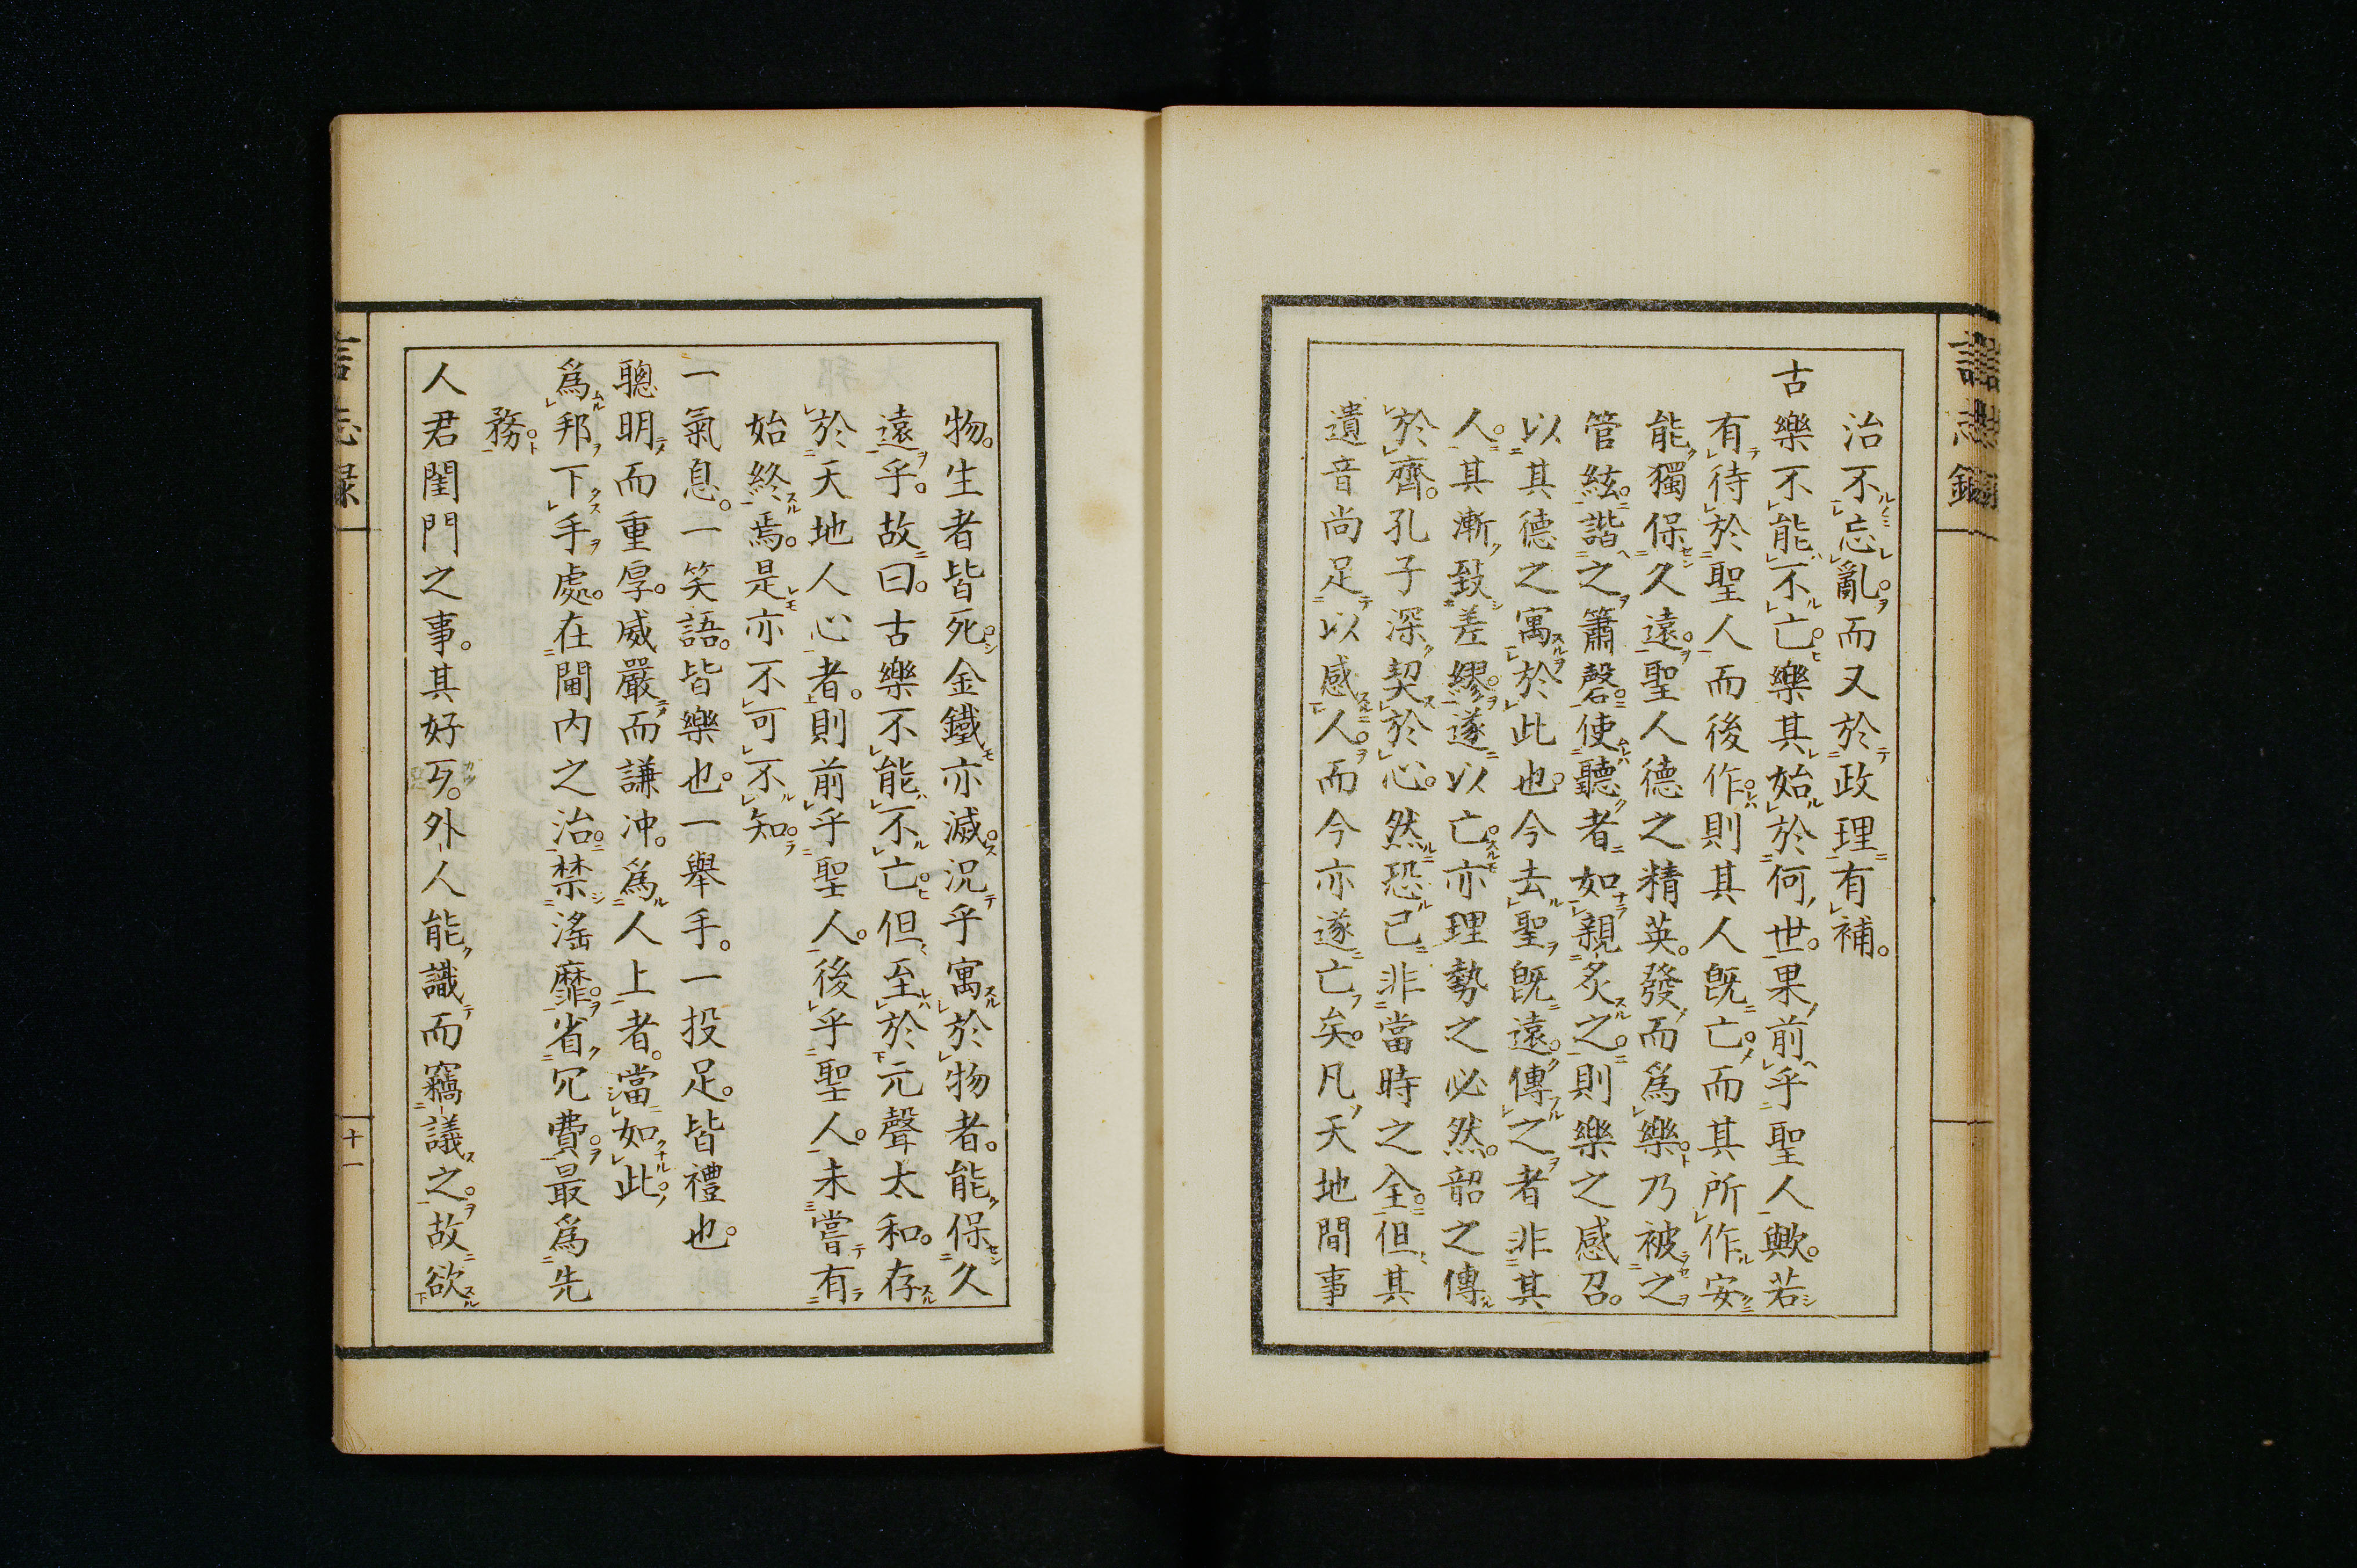 治不忘亂。而又於政理有補。
古樂不能不亡。樂其始於何世。果前乎聖人歟。若
有待於聖人而後作。則其人既亡。而其所作安
能獨保久遠。聖人德之精英。發而爲樂。乃被之
管絃。諧之簫磬。使聽者如親炙之。則樂之感召。
以其德之寓於此也。今去聖既遠。傳之者非其
人。其漸致差繆。遂以亡。亦理勢之必然。韶之傳
於齊。孔子深契於心。然恐已非當時之全。但其
遺音尚足以感人。而今亦遂亡矣。凡天地間事
言志錄
物。生者皆死。金鐵亦滅。況乎寓於物者。能保久
遠乎。故曰。古樂不能不亡。但至於元聲太和。存
於天地人心者。則前乎聖人。後乎聖人。未嘗有
始終焉。是亦不可不知。
一氣息。一笑語。皆樂也。一舉手。一投足。皆禮也。
聰明而重厚。威嚴而謙冲。爲人上者。當如此。
爲邦下手處。在閫內之治。禁滛靡。省冗費。最爲先
務。
人君閨門之事。其好歹。外人能識而竊議之。故欲
言志録
十一